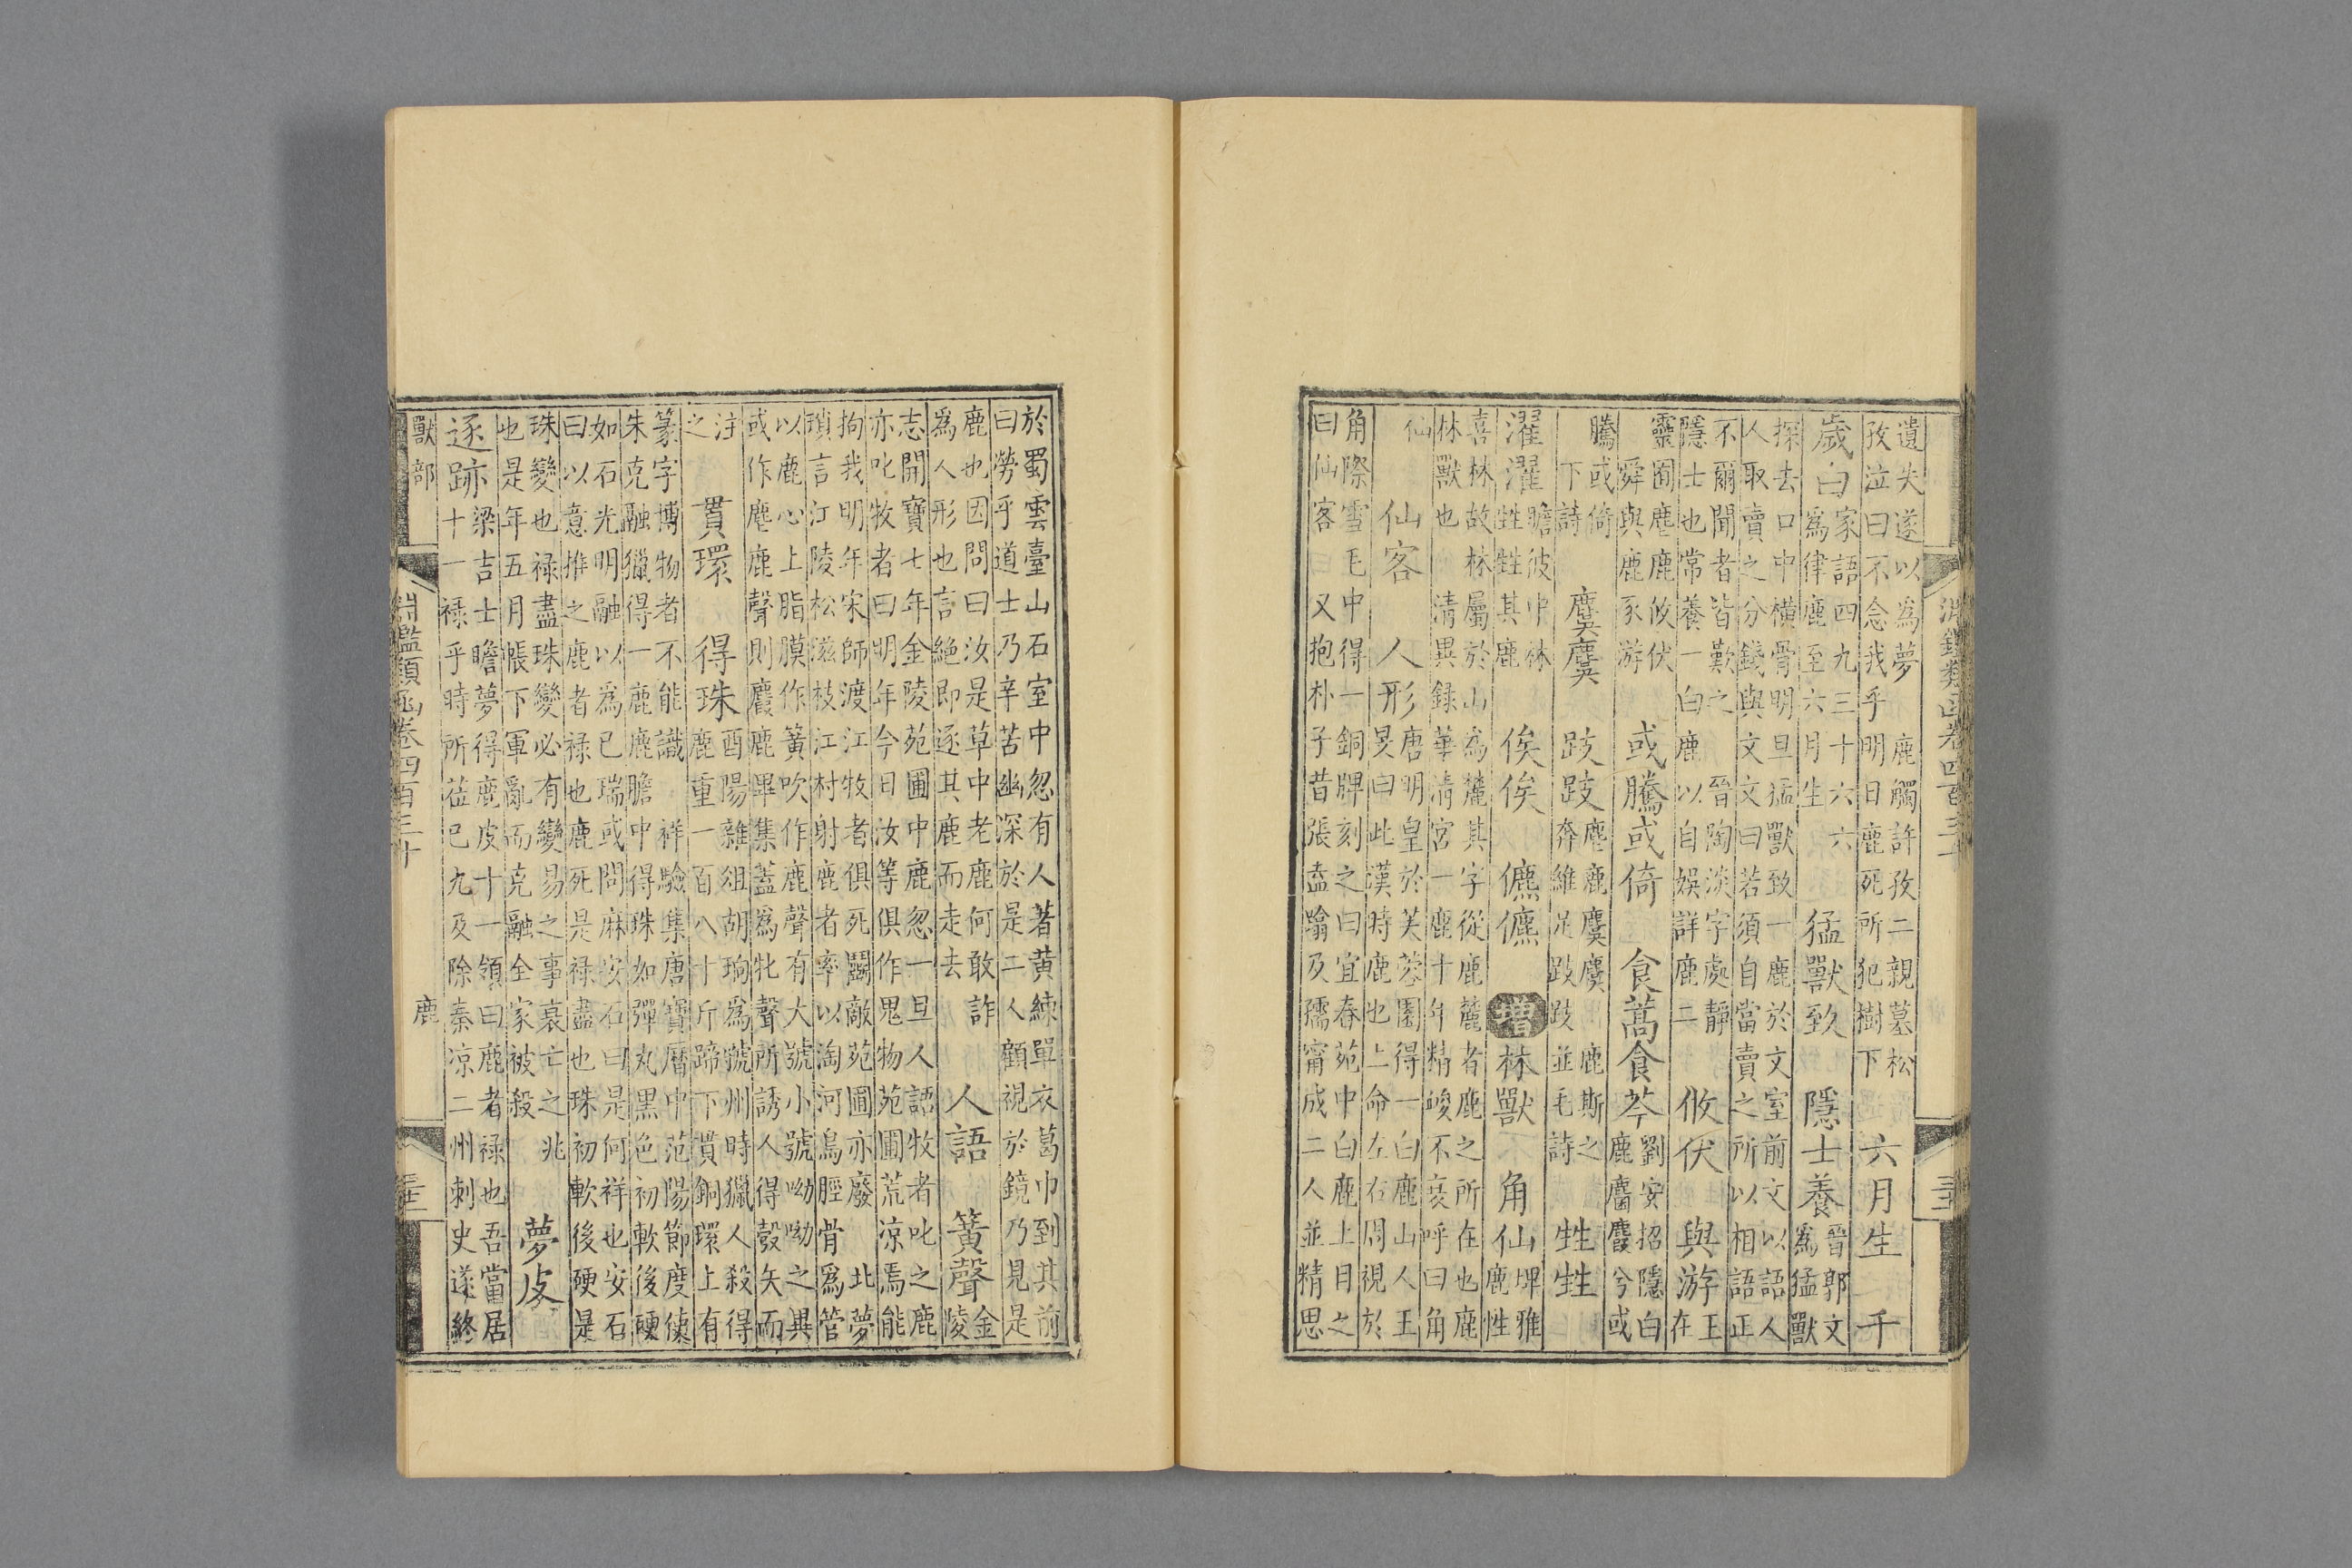 淵鑑類函卷四百三十
遺失遂以為夢 鹿觸許孜二親墓松
孜泣曰不念我乎明日鹿死所犯樹下
六月生 千
歲白
家語四九三十六六
為律鹿至六月生
猛獸致 隱士養
晉郭文
為猛獸
探去口中橫骨明旦猛獸致一鹿於文室前文以語人
人取賣之分錢與文文曰若須自當賣之所以相語正
不爾聞者皆歎之 晉陶淡字處靜
隱士也常養一白鹿以自娛詳鹿二
攸伏 與游
王
在
靈囿鹿鹿攸伏
舜與鹿豕游
或騰或倚 食蒿食芩
劉安招隱白
鹿麕麚兮或
騰或倚
下詩
麌麌 跂跂
麀鹿麌麌 鹿斯之
奔維足跂跂並毛詩
甡甡
濯濯
瞻彼中林
甡甡其鹿
俟俟 儦儦 增 林獸 角仙
埤雅
鹿性
喜林故林屬於山為麓其字從鹿麓者鹿之所在也鹿
林獸也 清異錄華清宮一鹿十年精峻不衰呼曰角
仙
仙客 人形
唐明皇於芙蓉園得一白鹿山人王
旻曰此漢時鹿也上命左右周視於
角際雪毛中得一銅牌刻之曰宜春苑中白鹿上目之
曰仙客曰又抱朴子昔張盍蹹及孺甯成二人並精思
於蜀雲臺山石室中忽有人著黃練單衣葛巾到其前
曰勞乎道士乃辛苦幽深於是二人顧視於鏡乃見是
鹿也因問曰汝是草中老鹿何敢詐
為人形也言絕即逐其鹿而走去
人語 簧聲
金
陵
志開寶七年金陵苑圃中鹿忽一旦人語牧者叱之鹿
亦叱牧者曰明年今日汝等俱作鬼物苑圃荒凉焉能
拘我明年宋師渡江牧者俱死鬬敵苑圃亦廢 北夢
瑣言江陵松滋枝江村射鹿者率以淘河鳥脛骨為管
以鹿心上脂膜作簧吹作鹿聲有大號小號呦呦之異
或作麀鹿聲則麚鹿畢集蓋為牝聲所誘人得彀矢而
注
之
貫環 得珠
酉陽雜俎胡珦為虢州時獵人殺得
鹿重一百八十斤蹄下貫銅環上有
篆字博物者不能識 祥驗集唐寶曆中范陽節度使
朱克融獵得一鹿鹿膽中得珠如彈丸黑色初軟後硬
如石光明融以為已瑞或問麻安石曰是何祥也安石
曰以意推之鹿者祿也鹿死是祿盡也珠初軟後硬是
珠變也祿盡珠變必有變易之事衰亡之兆
也是年五月帳下軍亂而克融全家被殺
夢皮
逐跡
梁吉士瞻夢得鹿皮十一領曰鹿者祿也吾當居
十一祿乎時所莅已九及除秦凉二州刺史遂終
獸部
淵鑑類函卷四百三十
鹿